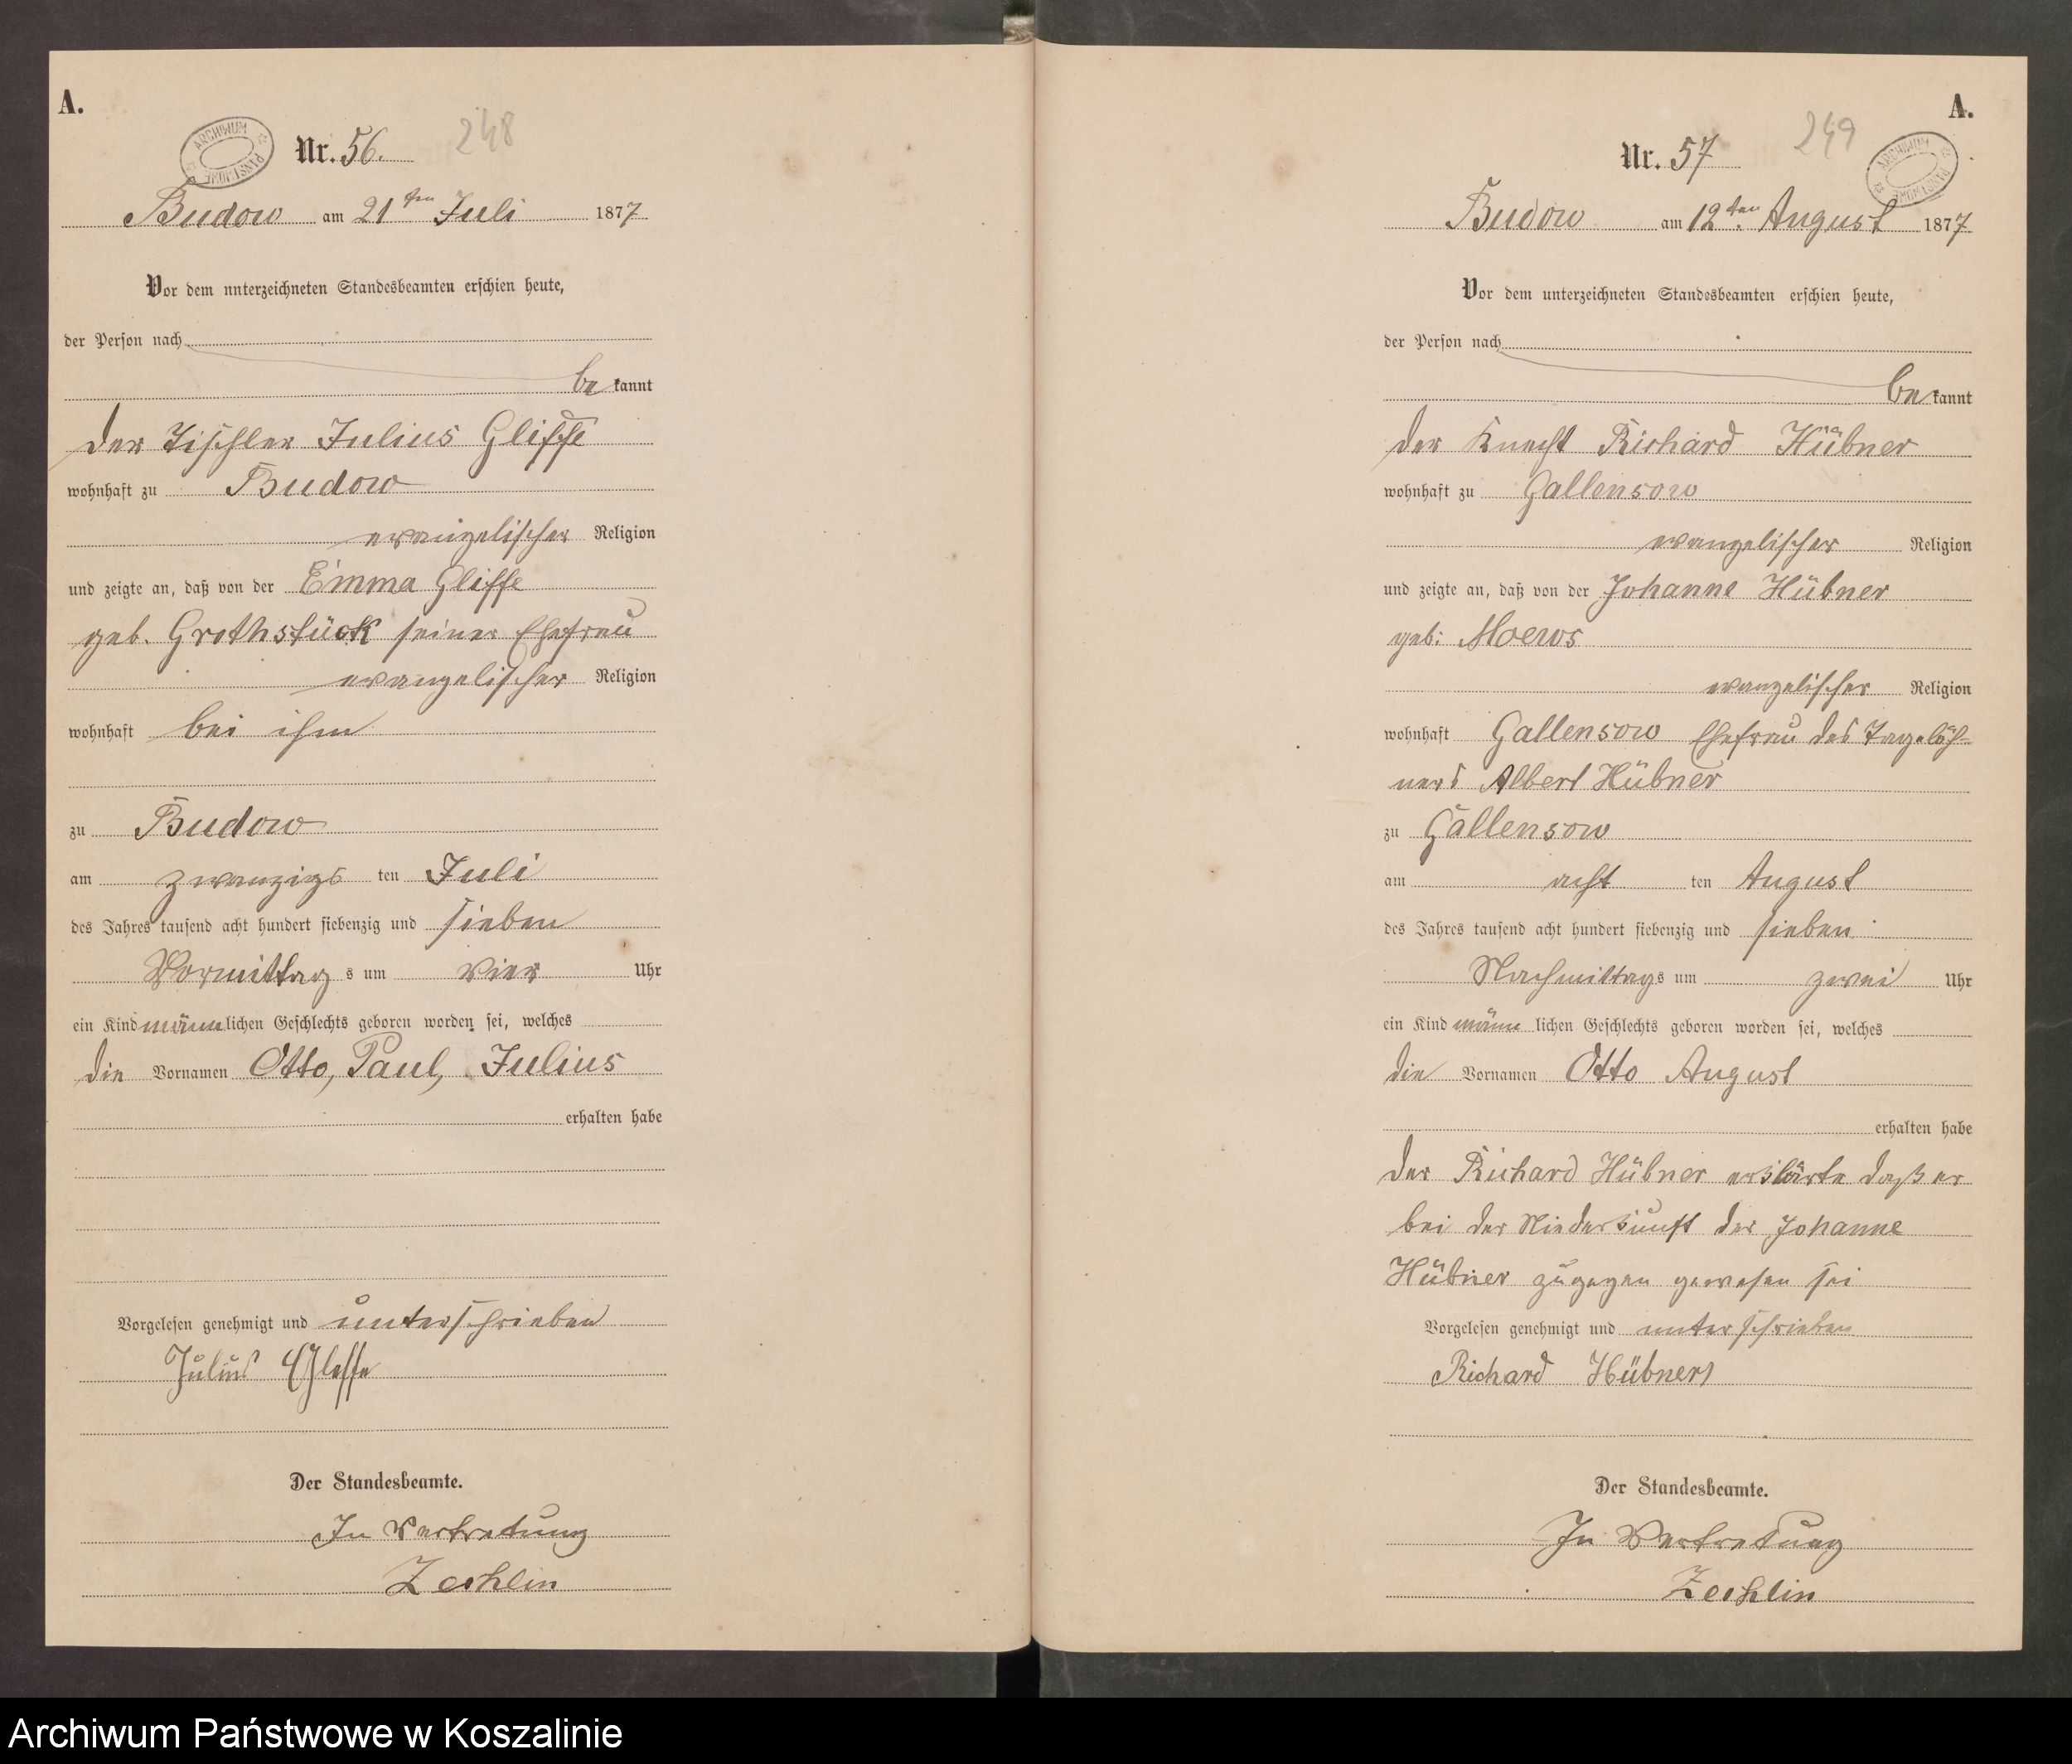 A.
ARCHIWUM PAŃSTWOWE
Nr. 56.
248
Budow am 21ten Juli 1877
Vor dem unterzeichneten Standesbeamten erschien heute,
der Person nach
bekannt
der Tischler Julius Gliffe
wohnhaft zu Budow
evangelischer Religion
und zeigte an, daß von der Emma Gliffe
geb. Grothstück seiner Ehefrau
evangelischer Religion
wohnhaft bei ihm
zu Budow
am zwanzigs ten Juli
des Jahres tausend acht hundert siebenzig und sieben
Vormittag s um vier Uhr
ein Kind männlichen Geschlechts geboren worden sei, welches
die Vornamen Otto, Paul, Julius
erhalten habe
Vorgelesen genehmigt und unterschrieben
Julius
Der Standesbeamte.
In Vertretung
Zechlin
A.
ARCHIWUM PAŃSTWOWE
Nr. 57
249
Budow am 12ten August 1877
Vor dem unterzeichneten Standesbeamten erschien heute,
der Person nach
bekannt
der Knecht Richard Hübner
wohnhaft zu Gallensow
evangelischer Religion
und zeigte an, daß von der Johanne Hübner
geb: Moews
evangelischer Religion
wohnhaft Gallensow Ehefrau des Tagelöh-
ners Albert Hübner
zu Gallensow
am acht ten August
des Jahres tausend acht hundert siebenzig und sieben
Nachmittags um zwei Uhr
ein Kind männ lichen Geschlechts geboren worden sei, welches
die Vornamen Otto August
erhalten habe
der Richard Hübner erklärte daß er
bei der Niederkunft der Johanne
Hübner zugegen gewesen sei
Vorgelesen genehmigt und unterschrieben
Richard Hübner
Der Standesbeamte.
In Vertretung
Zechlin
Archiwum Państwowe w Koszalinie